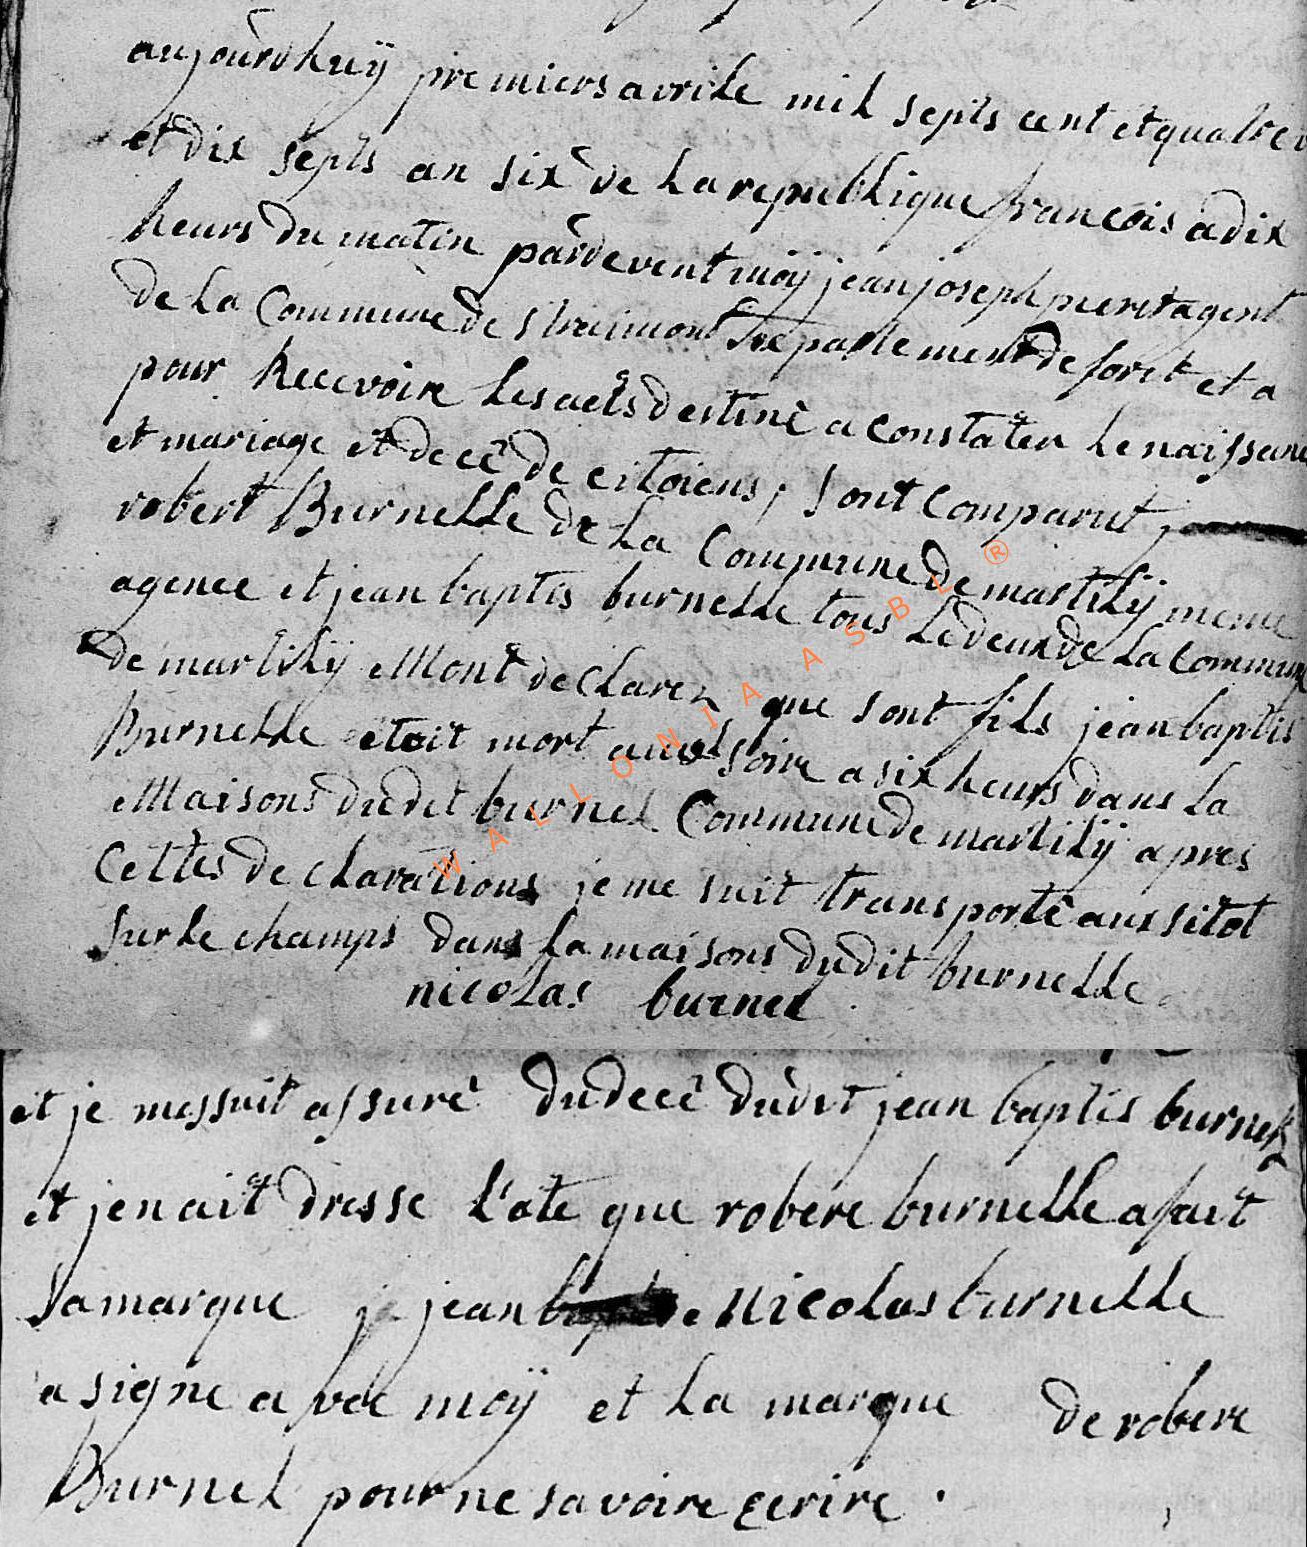 aujourdhuÿ premiers avrile mil septs cent et quattre
et dix septs an six de La republique francois a dix
heurs du matin pardevent moÿ jean joseph pieret agent
de La Commune de straimont Departement de foret et a
pour Recevoir Les acts destiné a constater Le naissan
et mariage et decé de citoiens, sont comparut,
robert Burnelle de La Commune de martilÿ meme
agence et jean baptis burnelle tous Le deux de La commun
de martilÿ Mont declarez que sont fils jean baptis
Burnelle etoit mort soire a six heurs dans La
Maisons dudit burnel Commune de martilÿ apres
Cettes declarations je me suit transporté aussitot
sur Le champs dans La maisons dudit burnelle
nicolas burnel
WALLONIA ASBL ®
et je messuit assuré du decé dudit jean baptis burnel
et jen ait dresse L'ate que robere burnelle a fait
sa marque jean Nicolas burnelle
a signe avec moÿ et La marque de robere
Burnel pour ne savoire ecrire.